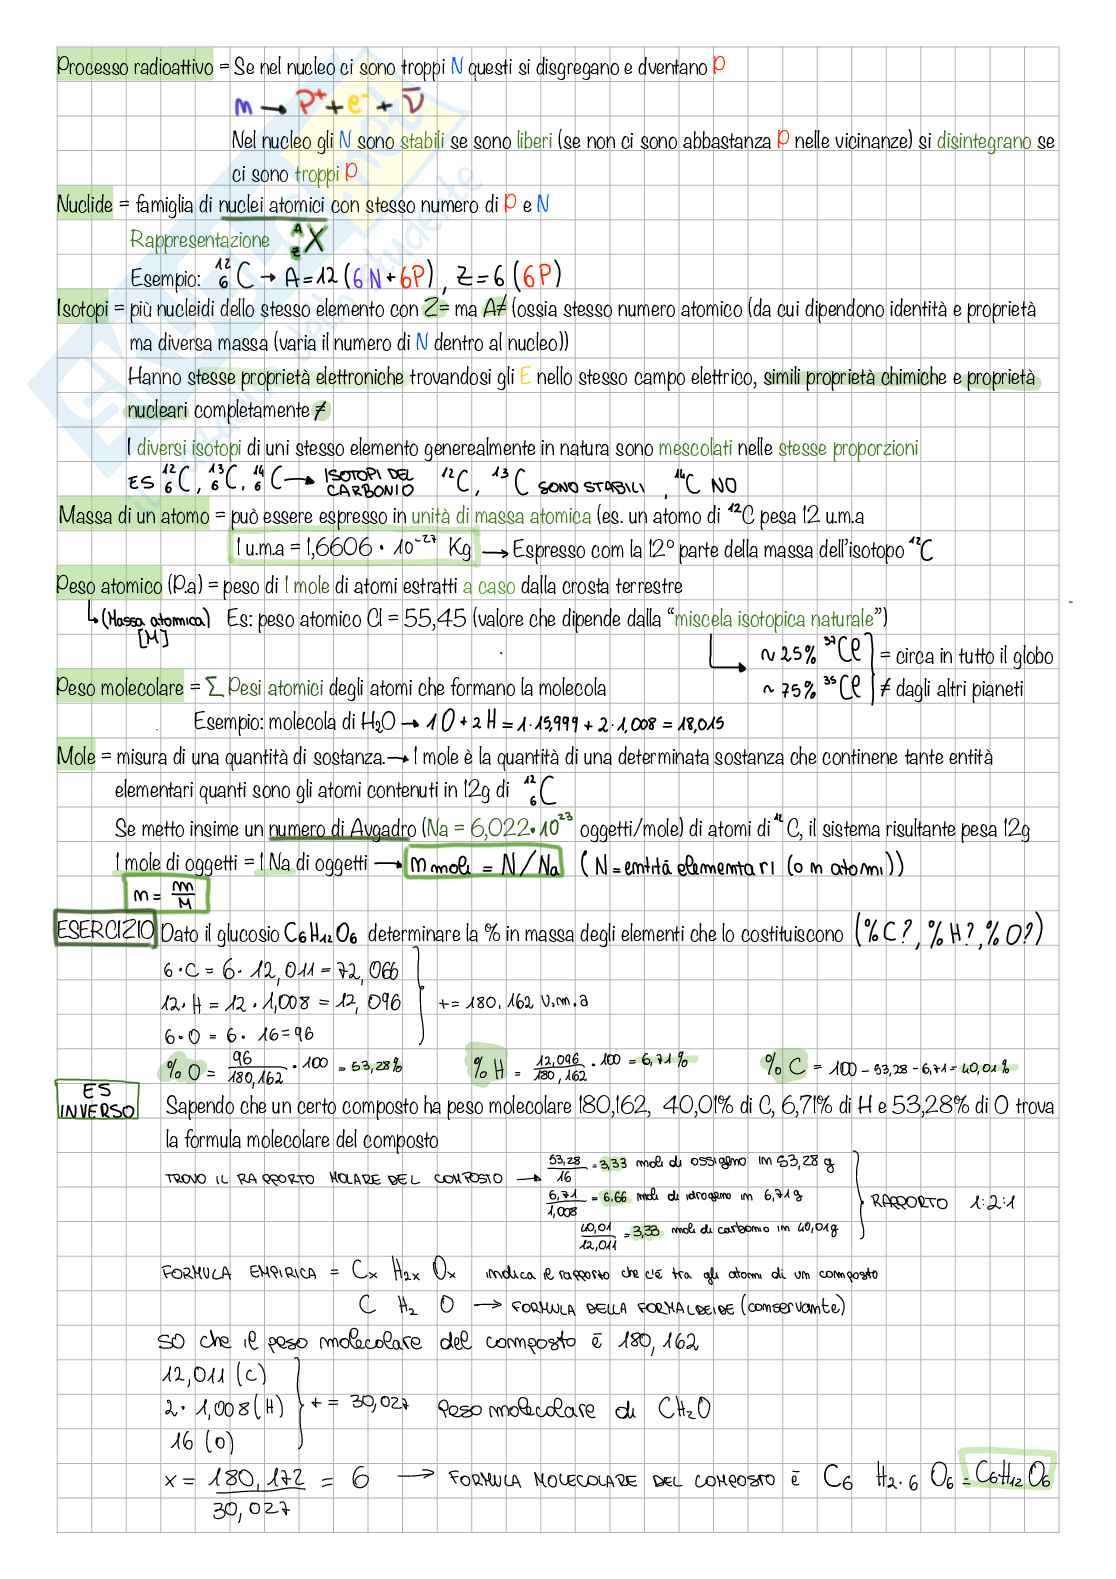 Processo radioattivo = Se nel nucleo ci sono troppi N questi si disgregano e dventano P
n → P⁺ + e⁻ + ν̅
Nel nucleo gli N sono stabili se sono liberi (se non ci sono abbastanza P nelle vicinanze) si disintegrano se
ci sono troppi P
Nuclide = famiglia di nuclei atomici con stesso numero di P e N
Rappresentazione ᴬ_Z X
Esempio: ¹²₆C → A=12 (6N+6P), Z=6 (6P)
Isotopi = più nucleidi dello stesso elemento con Z= ma A≠ (ossia stesso numero atomico (da cui dipendono identità e proprietà
ma diversa massa (varia il numero di N dentro al nucleo))
Hanno stesse proprietà elettroniche trovandosi gli E nello stesso campo elettrico, simili proprietà chimiche e proprietà
nucleari completamente ≠
I diversi isotopi di uni stesso elemento generealmente in natura sono mescolati nelle stesse proporzioni
ES ¹²₆C, ¹³₆C, ¹⁴₆C → ISOTOPI DEL CARBONIO ¹²C, ¹³C SONO STABILI, ¹⁴C NO
Massa di un atomo = può essere espresso in unità di massa atomica (es. un atomo di ¹²C pesa 12 u.m.a
1 u.m.a = 1,6606 • 10⁻²⁷ Kg → Espresso com la 12° parte della massa dell'isotopo ¹²C
Peso atomico (P.a) = peso di 1 mole di atomi estratti a caso dalla crosta terrestre
↳ (Massa atomica) [M] Es: peso atomico Cl = 55,45 (valore che dipende dalla “miscela isotopica naturale”)
~ 25% ³⁷Cl = circa in tutto il globo
Peso molecolare = Σ Pesi atomici degli atomi che formano la molecola
~ 75% ³⁵Cl ≠ dagli altri pianeti
Esempio: molecola di H₂O → 1O + 2H = 1·15,999 + 2·1,008 = 18,015
Mole = misura di una quantità di sostanza. → 1 mole è la quantità di una determinata sostanza che continene tante entità
elementari quanti sono gli atomi contenuti in 12g di ¹²₆C
Se metto insime un numero di Avgadro (Na = 6,022•10²³ oggetti/mole) di atomi di ¹²C, il sistema risultante pesa 12g
1 mole di oggetti = 1 Na di oggetti → n moli = N/Na (N = entità elementari (o n atomi))
n = m/M
ESERCIZIO Dato il glucosio C₆H₁₂O₆ determinare la % in massa degli elementi che lo costituiscono (%C?, %H?, %O?)
6·C = 6· 12,011 = 72,066
12·H = 12 · 1,008 = 12,096 += 180,162 U.m.a
6·O = 6· 16 = 96
%O = 96/180,162 · 100 = 53,28% %H = 12,096/180,162 · 100 = 6,71% %C = 100 - 53,28 - 6,71 = 40,01%
ES INVERSO Sapendo che un certo composto ha peso molecolare 180,162, 40,01% di C, 6,71% di H e 53,28% di O trova
la formula molecolare del composto
TROVO IL RAPPORTO MOLARE DEL COMPOSTO → 53,28/16 = 3,33 moli di ossigeno in 53,28 g
6,71/1,008 = 6.66 moli di idrogeno in 6,71g RAPPORTO 1:2:1
40,01/12,011 = 3,33 moli di carbonio in 40,01g
FORMULA EMPIRICA = Cx H2x Ox indica il rapporto che c'è tra gli atomi di un composto
C H₂ O → FORMULA DELLA FORMALDEIDE (conservante)
SO che il peso molecolare del composto è 180,162
12,011 (C)
2· 1,008 (H) += 30,027 Peso molecolare di CH₂O
16 (O)
x = 180,172/30,027 = 6 → FORMULA MOLECOLARE DEL COMPOSTO è C₆ H₂·₆ O₆ = C₆H₁₂O₆